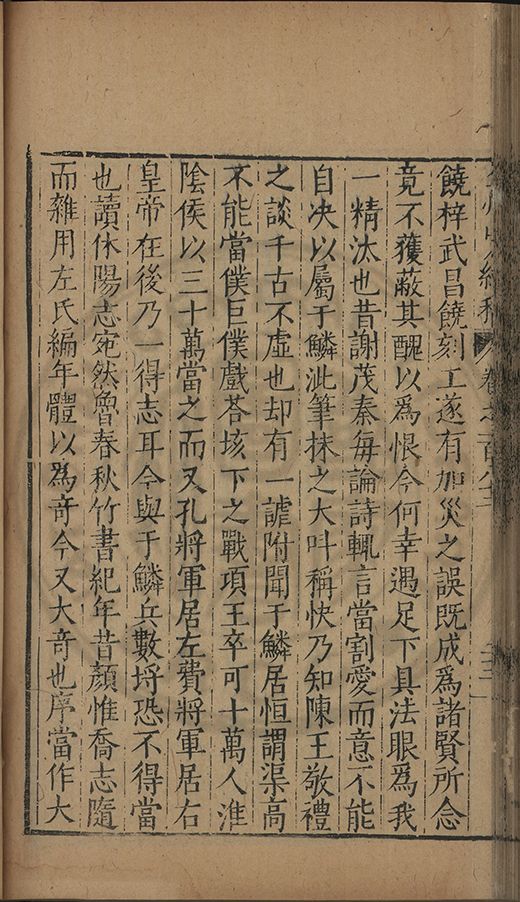 饒梓武昌饒刻工遂有加災之誤既成為諸賢所念
竟不獲蔽其醜以為恨今何幸遇足下具法眼為我
一精汰也昔謝茂秦每論詩輒言當割愛而意不能
自决以屬于鱗泚筆抹之大叫稱快乃知陳王敬禮
之談千古不虚也却有一謔附聞于鱗居恒謂渠高
不能當僕巨僕戲荅垓下之戰項王卒可十萬人淮
陰侯以三十萬當之而又孔將軍居左費將軍居右
皇帝在後乃一得志耳今與于鱗兵數埒恐不得當
也讀休陽志宛然魯春秋竹書紀年昔顔惟喬志隨
而雜用左氏編年體以為竒今又大竒也序當作大